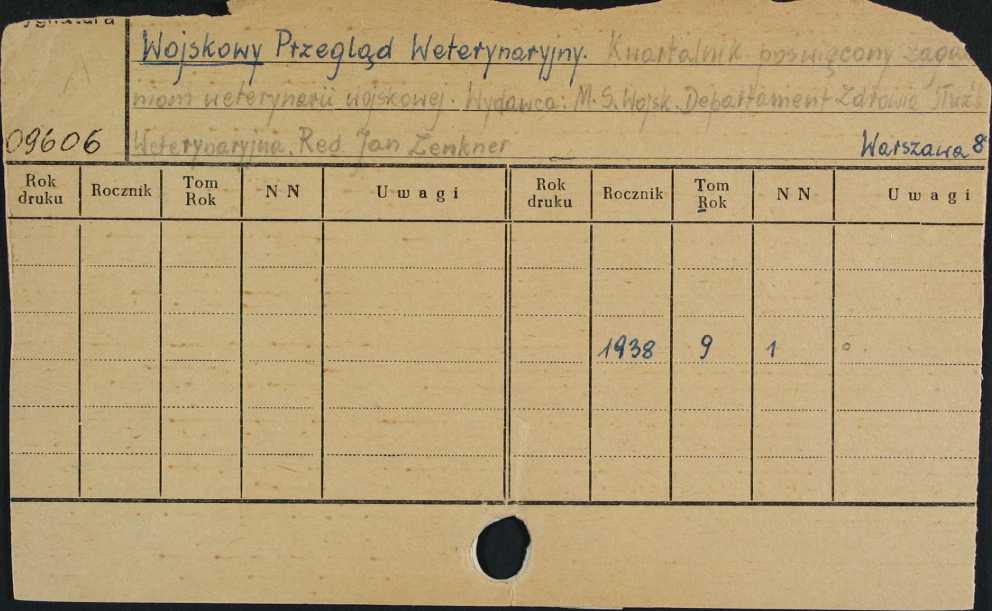 ygnatura
Wojskowy Przegląd Weterynaryjny. Kwartalnik poświęcony zaga
niom weterynarii wojskowej. Wydawca: M. S. Wojsk. Departament Zdrowia Służb
09606 Weterynaryjna. Red. Jan Zenkner Warszawa 8
Rok druku Rocznik Tom Rok N N Uwagi Rok druku Rocznik Tom Rok N N Uwagi
1938 9 1